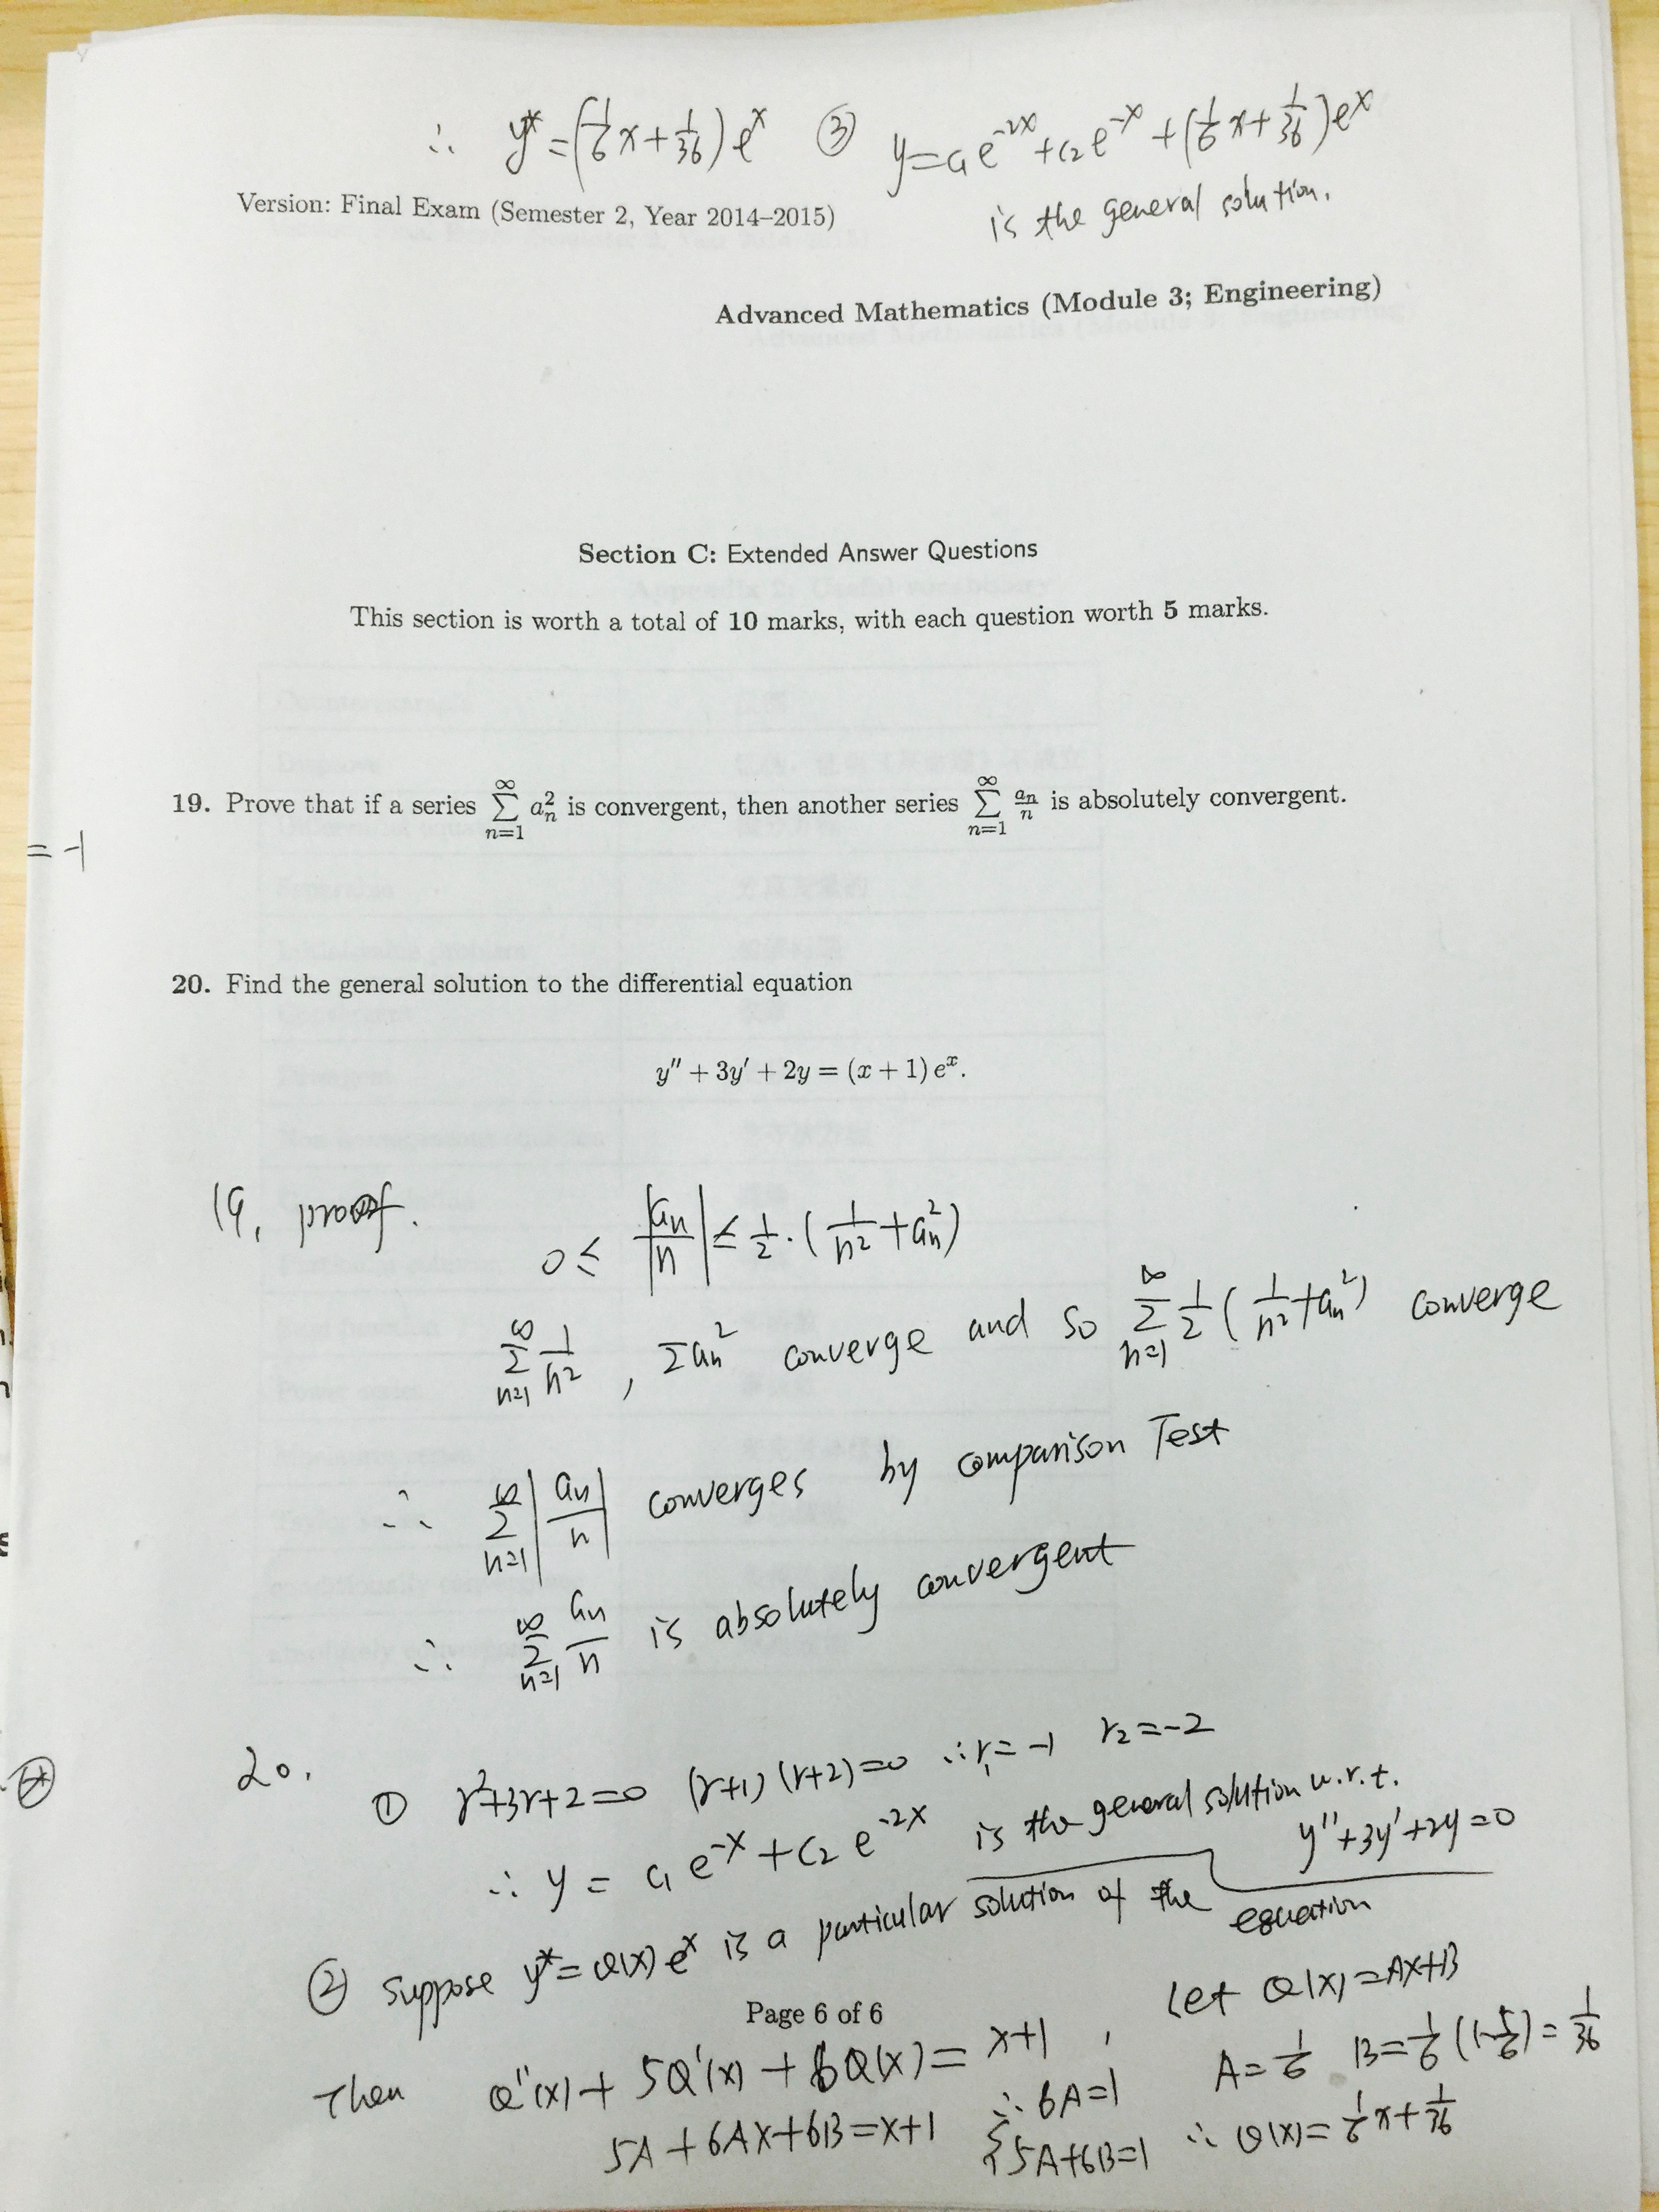 ∴ y* = (1/6 x + 1/36) e^x ③ y = c₁e^{-2x} + c₂e^{-x} + (1/6 x + 1/36) e^x
is the general solution.
Version: Final Exam (Semester 2, Year 2014–2015)
Advanced Mathematics (Module 3; Engineering)
Section C: Extended Answer Questions
This section is worth a total of 10 marks, with each question worth 5 marks.
19. Prove that if a series ∑_{n=1}^{∞} a_n^2 is convergent, then another series ∑_{n=1}^{∞} a_n/n is absolutely convergent.
= -1
20. Find the general solution to the differential equation
y″ + 3y′ + 2y = (x + 1) e^x.
19, proof.
0 ≤ |a_n/n| ≤ 1/2 · (1/n² + a_n²)
∑_{n=1}^{∞} 1/n², ∑a_n² converge and so ∑_{n=1}^{∞} 1/2 (1/n² + a_n²) converge
∴ ∑_{n=1}^{∞} |a_n/n| converges by comparison Test
∴ ∑_{n=1}^{∞} a_n/n is absolutely convergent
20. ① r²+3r+2=0 (r+1)(r+2)=0 ∴ r₁=-1 r₂=-2
∴ y = c₁ e^{-x} + c₂ e^{-2x} is the general solution w.r.t.
y''+3y'+2y=0
② Suppose y* = Q(x) e^x is a particular solution of the equation
Let Q(x)=Ax+B
Page 6 of 6
Then Q''(x) + 5Q'(x) + 6Q(x) = x+1, A=1/6 B=1/6 (1-5/6) = 1/36
5A + 6Ax + 6B = x+1 ∴ { 6A=1
5A+6B=1 ∴ Q(x) = 1/6 x + 1/36